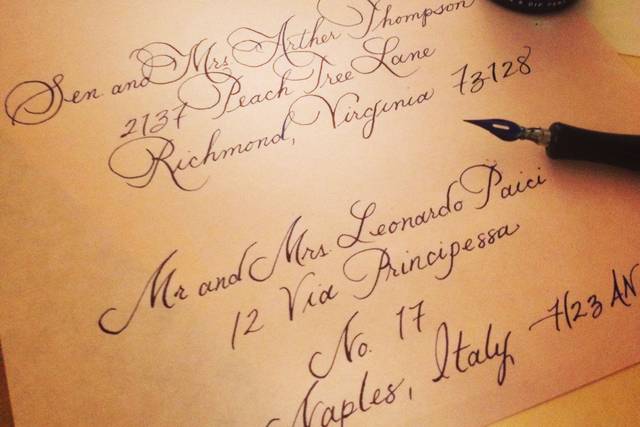 Sen and Mrs Arther Thompson
2137 Peach Tree Lane
Richmond, Virginia 73728
Mr and Mrs. Leonardo Paici
12 Via Principessa
No. 17
Naples, Italy 7123 AN